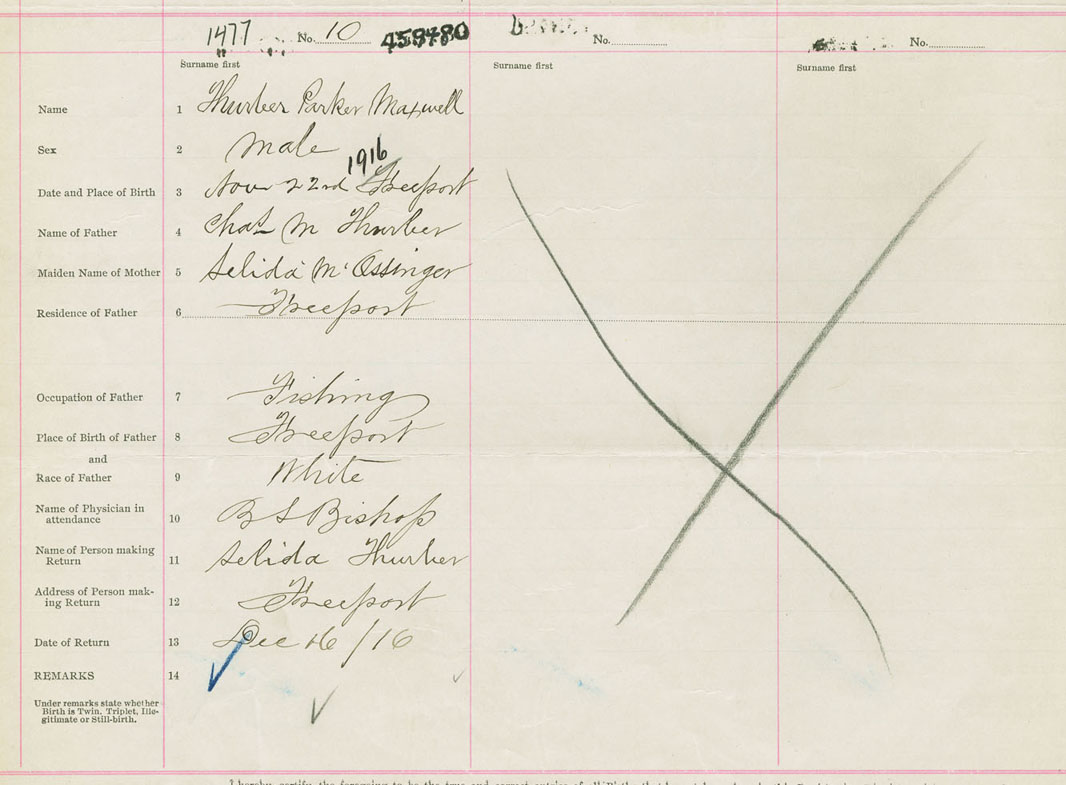 1477 No. 10 458480 No. No.
Surname first Surname first Surname first
Name 1 Thurber Parker Maxwell
Sex 2 Male
1916
Date and Place of Birth 3 Nov 22nd Freeport
Name of Father 4 Chas M Thurber
Maiden Name of Mother 5 Selida M. Ossinger
Residence of Father 6 Freeport
Occupation of Father 7 Fishing
Place of Birth of Father 8 Freeport
and
Race of Father 9 White
Name of Physician in
attendance 10 B S Bishop
Name of Person making
Return 11 Selida Thurber
Address of Person mak-
ing Return 12 Freeport
Date of Return 13 Dec 16/16
REMARKS 14
Under remarks state whether
Birth is Twin. Triplet, Ille-
gitimate or Still-birth.
I hereby certify the foregoing to be the true and correct entries of all Births that